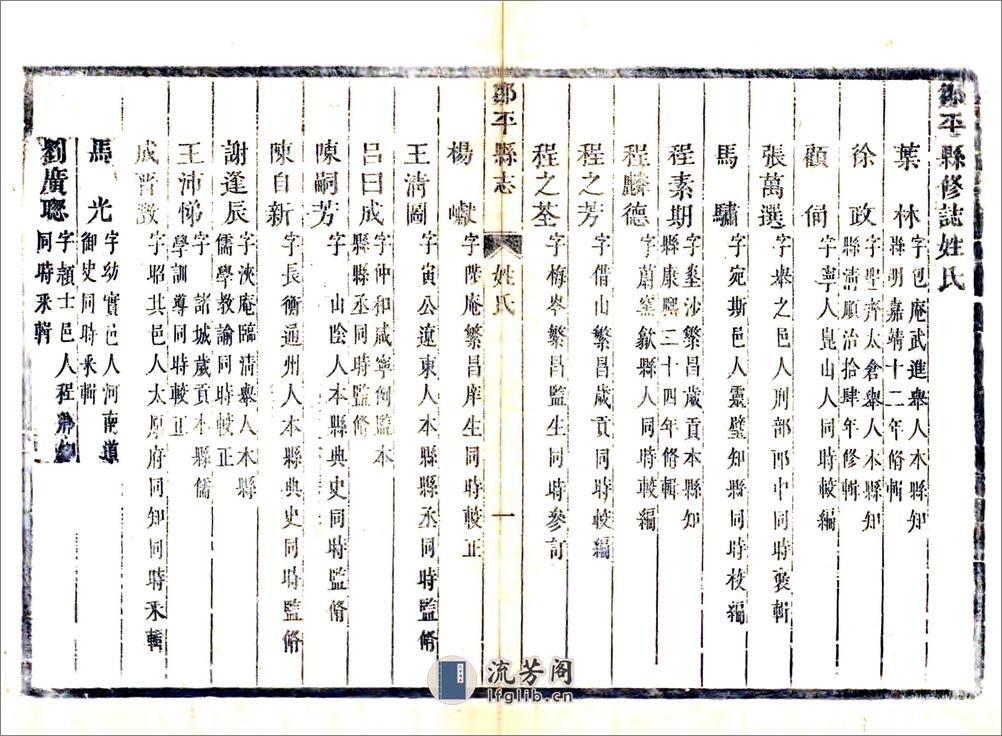 鄒平縣修誌姓氏
葉林 字包庵武進舉人本縣知
縣明嘉靖十二年脩輯
徐政 字聖齊太倉舉人本縣知
縣清順治拾肆年修輯
顧侗 字寧人崑山人同時較編
張萬選 字舉之邑人刑部郎中同時裒輯
馬驌 字宛斯邑人靈璧知縣同時校編
程素期 字堊沙繁昌歲貢本縣知
縣康熙三十四年脩輯
程麟德 字蔚窒歙縣人同時較編
程之芳 字借山繁昌歲貢同時較編
程之荃 字梅岑繁昌監生同時參訂
鄒平縣志
姓氏
一
楊 字陛庵繁昌庠生同時較正
王淸圖 字寅公遼東人本縣丞同時監脩
呂曰成 字仲和咸寧例監本
縣縣丞同時監脩
陳嗣芳 字 山陰人本縣典史同時監脩
陳自新 字長衡通州人本縣典史同時監脩
謝逢辰 字浹庵臨清舉人本縣
儒學教諭同時較正
王沛悌 字 諸城歲貢本縣儒
學訓導同時較正
成晉徵 字昭其邑人太原府同知同時釆輯
馬光 字幼實邑人河南道
御史同時釆輯
劉廣聰 字穎士邑人程
同時釆輯
流芳阁
lfglib.cn